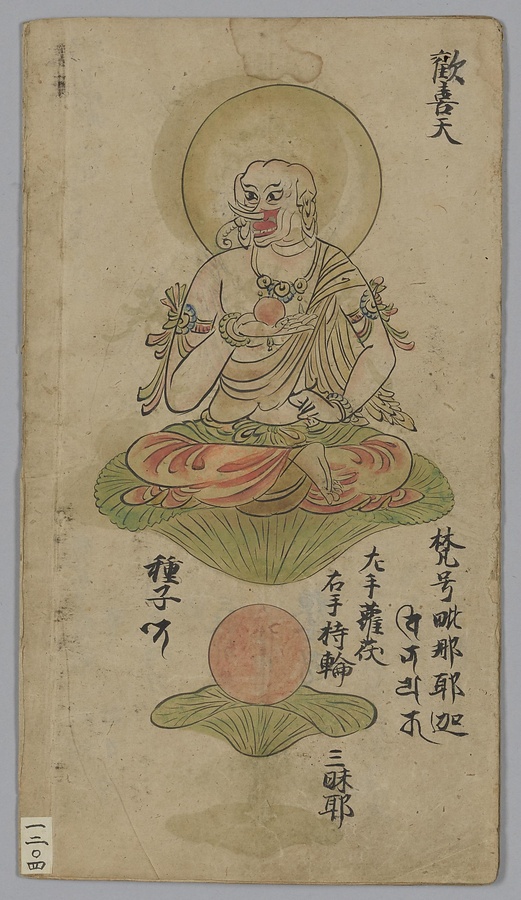 歓喜天
梵号毗那耶迦
左手蘿茯
右手持輪
種子
三昧耶
一二〇四